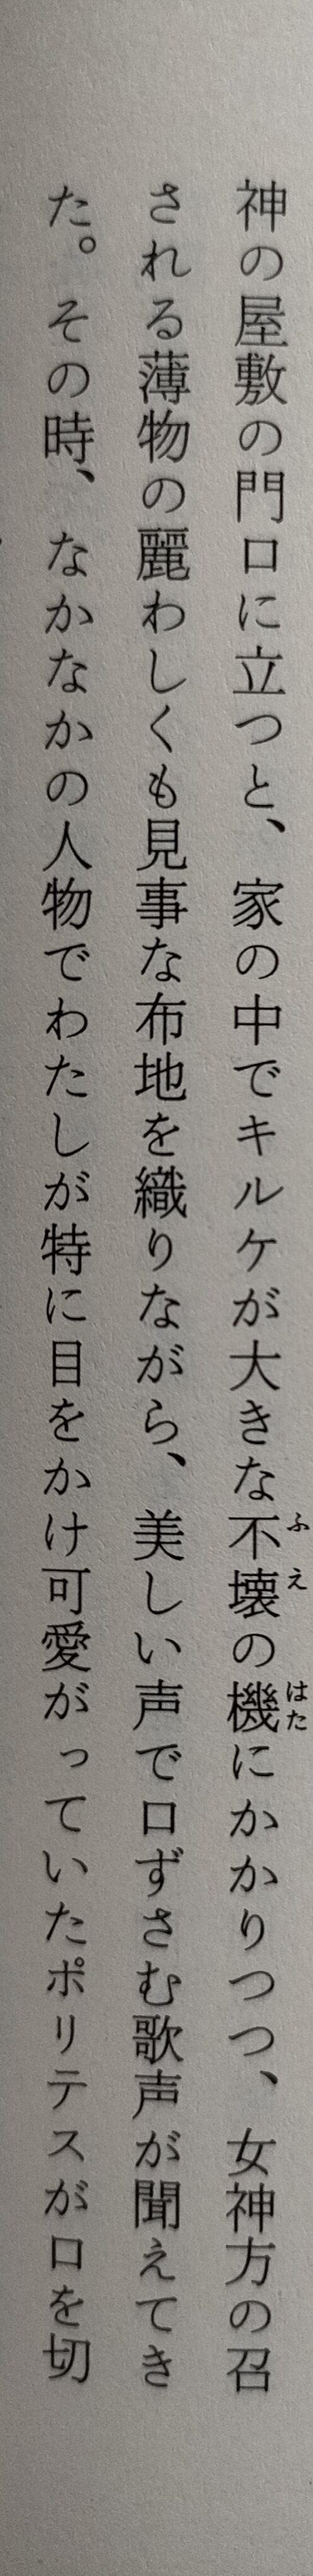 神の屋敷の門口に立つと、家の中でキルケが大きな不壊の機にかかりつつ、女神方の召
ふえ
はた
される薄物の麗わしくも見事な布地を織りながら、美しい声で口ずさむ歌声が聞えてき
た。その時、なかなかの人物でわたしが特に目をかけ可愛がっていたポリテスが口を切